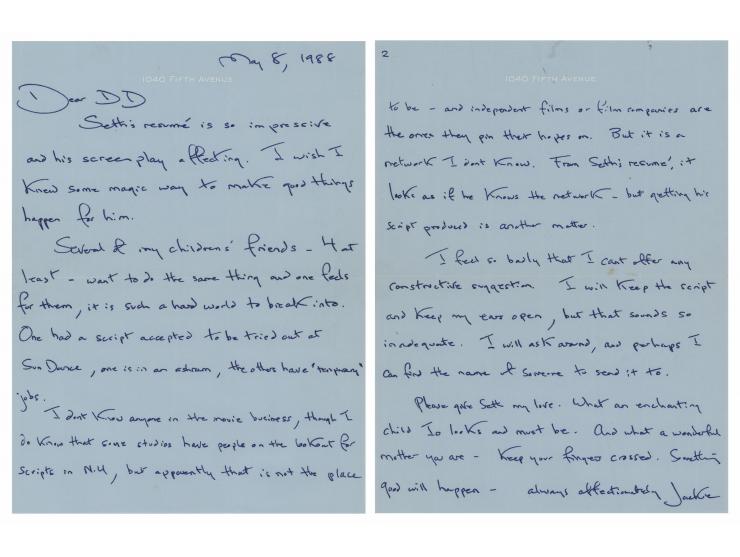 May 8, 1988
1040 FIFTH AVENUE
Dear DD
Seth's resumé is so impressive
and his screenplay affecting. I wish I
knew some magic way to make good things
happen for him.
Several of my childrens' friends - 4 at
least - want to do the same thing and one feels
for them, it is such a hard world to break into.
One had a script accepted to be tried out at
Sun Dance, one is in an ashram, the others have "temporary"
jobs.
I dont know anyone in the movie business, though I
do know that some studios have people on the lookout for
scripts in N.Y, but apparently that is not the place
2
1040 FIFTH AVENUE
to be - and independent films or film companies are
the ones they pin their hopes on. But it is a
network I dont know. From Seth's resumé, it
looks as if he knows the network - but getting his
script produced is another matter.
I feel so badly that I cant offer any
constructive suggestion. I will keep the script
and keep my ears open, but that sounds so
inadequate. I will ask around, and perhaps I
can find the name of someone to send it to.
Please give Seth my love. What an enchanting
child Jo looks and must be. And what a wonderful
mother you are - keep your fingers crossed. Something
good will happen - always affectionately Jackie